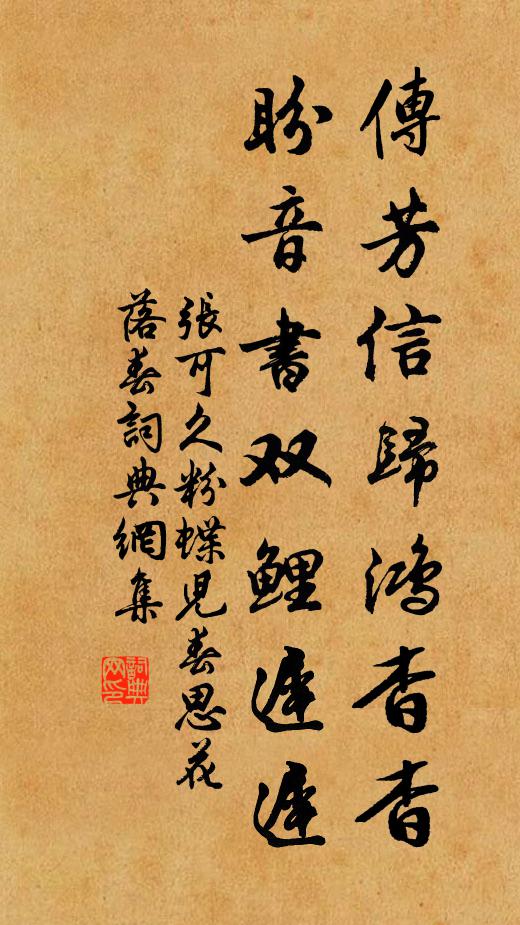 傳芳信歸鴻杳杳
盼音書双鯉遲遲
張可久粉蝶兒春思花
落春詞典網集
詞典
网印